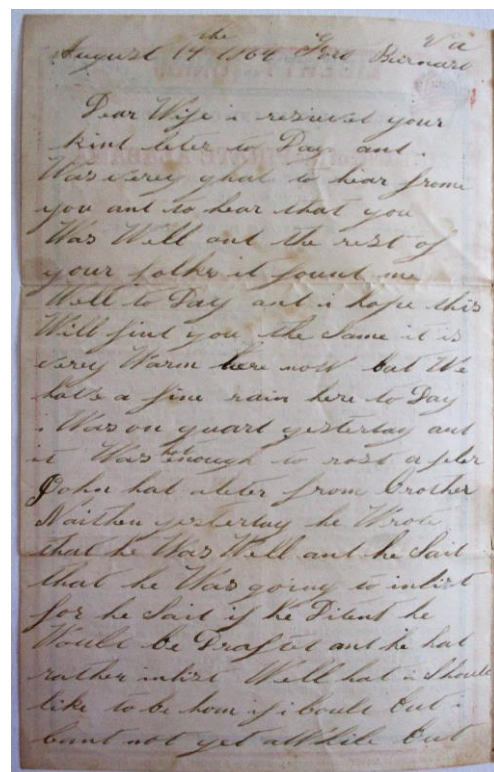 August 14 the 1864 Fort Burnard Va
Dear Wife i resievet your
kint leter to Day ant
Was verey ghat to hear frome
you ant to hear that you
Was Well ant the rest of
your folks it fount me
Well to Day ant i hope this
Will fint you the same it is
verey Warm here now but We
hat a fine rain here to Day
i Was on guart yesterday ant
it Was hot enough to rost a feler
John hat aleter from brother
Naithen yesterday he Wrote
that he Was Well ant he sait
that he Was going to inlist
for he sait if he Ditent he
Would be Drafted ant he hat
rather inlist Well hat i should
like to be hom if i could but i
cant not yet aWhile but